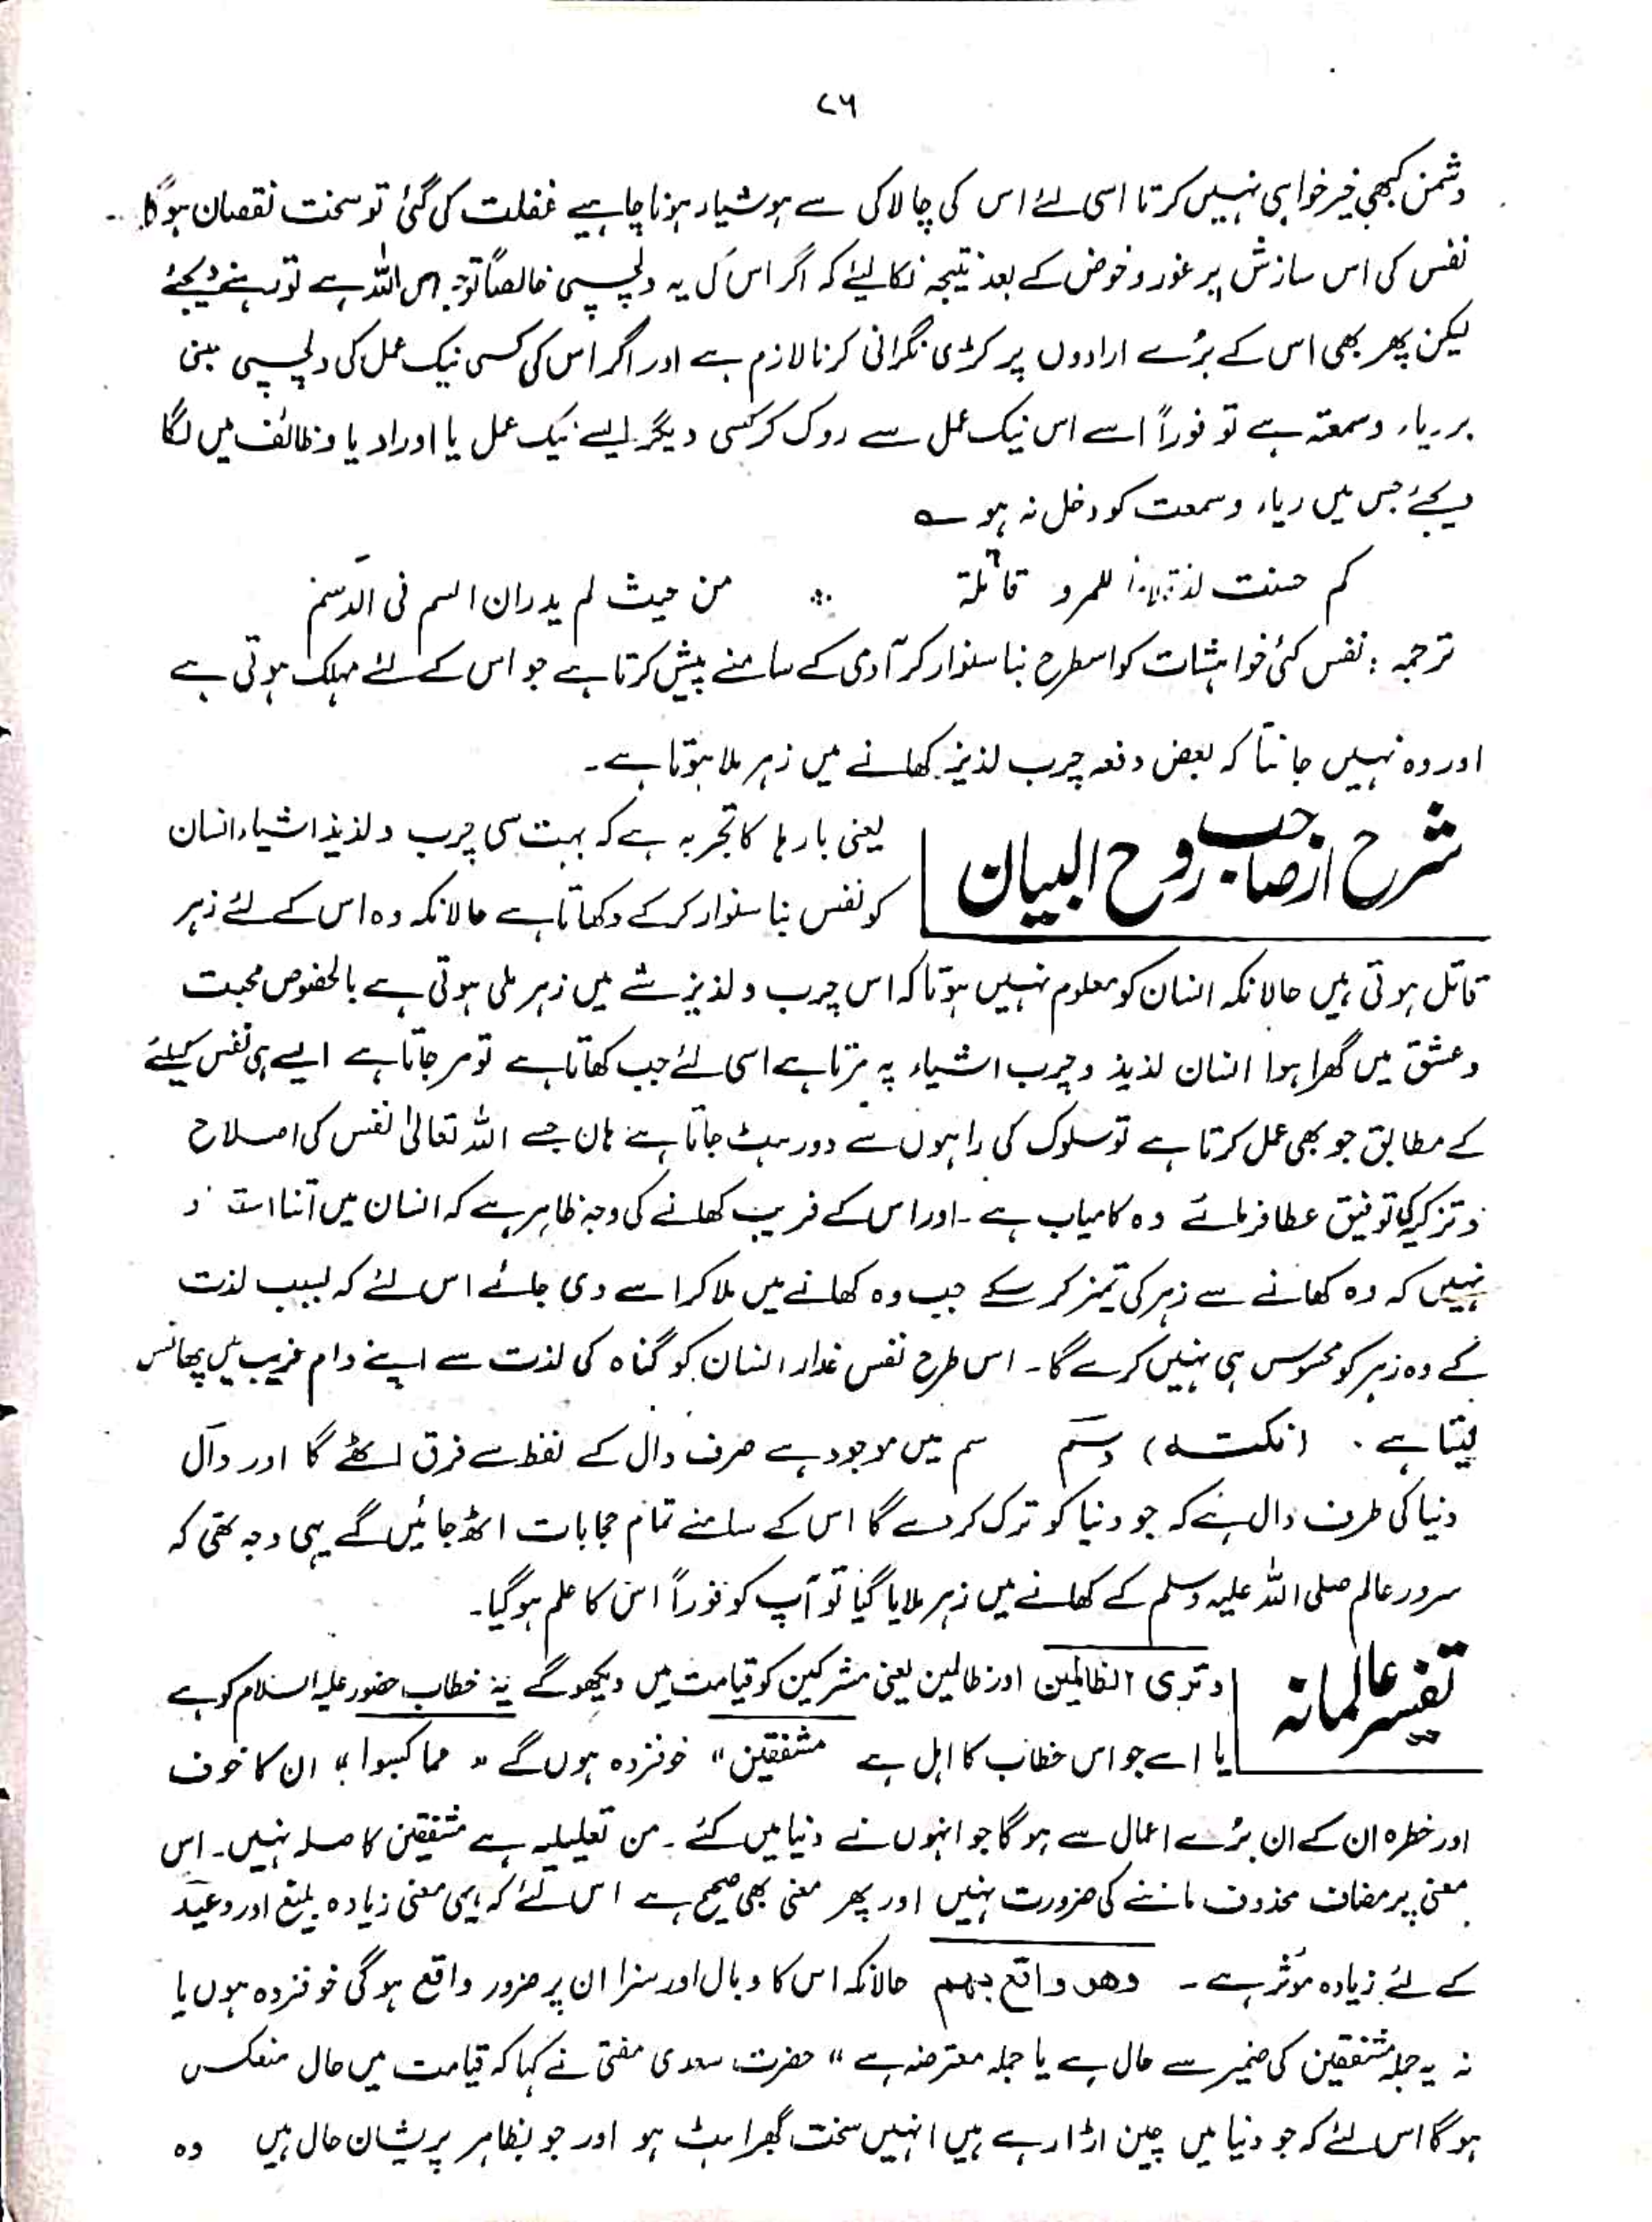 ۷۶
دشمن کبھی خیرخواہی نہیں کرتا اسی لئے اس کی چالاکی سے ہوشیار ہونا چاہیے غفلت کی گئی تو سخت نقصان ہوگا۔
نفس کی اس سازش پر غور و خوض کے بعد نتیجہ نکالیئے کہ اگر اس کی یہ دلچسپی خالصاً توجہ الی اللہ ہے تو رہنے دیجئے
لیکن پھر بھی اس کے بُرے ارادوں پر کڑی نگرانی کرنا لازم ہے اور اگر اس کی کسی نیک عمل کی دلچسپی مبنی
بر ریاء و سمعتہ ہے تو فوراً اسے اس نیک عمل سے روک کر کسی دیگر ایسے نیک عمل یا اوراد یا وظائف میں لگا
دیجئے جس میں ریاء و سمعت کو دخل نہ ہو ؎
کم حسنت لذتہ للمرو قاتلۃ ؞ من حیث لم یدر ان السم فی الدَسَم
ترجمہ : نفس کئی خواہشات کو اسطرح بنا سنوار کر آدمی کے سامنے پیش کرتا ہے جو اس کے لئے مہلک ہوتی ہے
اور وہ نہیں جانتا کہ بعض دفعہ چرب لذیذ کھانے میں زہر ملا ہوتا ہے۔
شرح از صاحب روح البیان
یعنی بارہا کا تجربہ ہے کہ بہت سی چرب و لذیذ اشیاء انسان
کو نفس بنا سنوار کر کے دکھاتا ہے حالانکہ وہ اس کے لئے زہر
قاتل ہوتی ہیں حالانکہ انسان کو معلوم نہیں ہوتا کہ اس چرب و لذیذ شے میں زہر ملی ہوتی ہے بالخصوص محبت
و عشق میں گھرا ہوا انسان لذیذ و چرب اشیاء پہ مرتا ہے اسی لئے جب کھاتا ہے تو مر جاتا ہے ایسے ہی نفس کیلئے
کے مطابق جو بھی عمل کرتا ہے تو سلوک کی راہوں سے دور ہٹ جاتا ہے ہاں جسے اللہ تعالیٰ نفس کی اصلاح
و تزکیہ کی توفیق عطا فرمائے وہ کامیاب ہے ۔ اور اس کے فریب کھانے کی وجہ ظاہر ہے کہ انسان میں اتنا
نہیں کہ وہ کھانے سے زہر کی تمیز کر سکے جب وہ کھانے میں ملا کر اسے دی جائے اس لئے کہ بسبب لذت
کے وہ زہر کو محسوس ہی نہیں کرے گا ۔ اس طرح نفس غدار انسان کو گناہ کی لذت سے اپنے دام فریب میں پھانس
لیتا ہے ۔ (نکتہ) دسَم سم میں موجود ہے صرف دال کے نقطہ سے فرق اٹھے گا اور دال
دنیا کی طرف دال ہے کہ جو دنیا کو ترک کر دے گا اس کے سامنے تمام حجابات اٹھ جائیں گے یہی وجہ تھی کہ
سرور عالم صلی اللہ علیہ وسلم کے کھانے میں زہر ملایا گیا تو آپ کو فوراً اس کا علم ہو گیا۔
تفسیر عالمانہ
وتری الظالمین اور ظالمین یعنی مشرکین کو قیامت میں دیکھو گے یہ خطاب حضور علیہ السلام کو ہے
یا اسے جو اس خطاب کا اہل ہے مشفقین " خوفزدہ ہوں گے " مما کسبوا " ان کا خوف
اور خطرہ ان کے ان بُرے اعمال سے ہوگا جو انہوں نے دنیا میں کئے ۔ من تعلیلیہ ہے مشفقین کا صلہ نہیں ۔ اس
معنی پر مضاف محذوف ماننے کی ضرورت نہیں اور پھر معنی بھی صحیح ہے اس لئے کہ یہی معنی زیادہ بلیغ اور وعید
کے لئے زیادہ مؤثر ہے ۔ وھو واقع بھم حالانکہ اس کا وبال اور سزا ان پر ضرور واقع ہوگی خوفزدہ ہوں یا
نہ یہ جملہ مشفقین کی ضمیر سے حال ہے یا جملہ معترضہ ہے " حضرت سعدی مفتی نے کہا کہ قیامت میں حال منعکس
ہوگا اس لئے کہ جو دنیا میں چین اڑا رہے ہیں انہیں سخت گھبراہٹ ہو اور جو بظاہر پریشان حال ہیں وہ